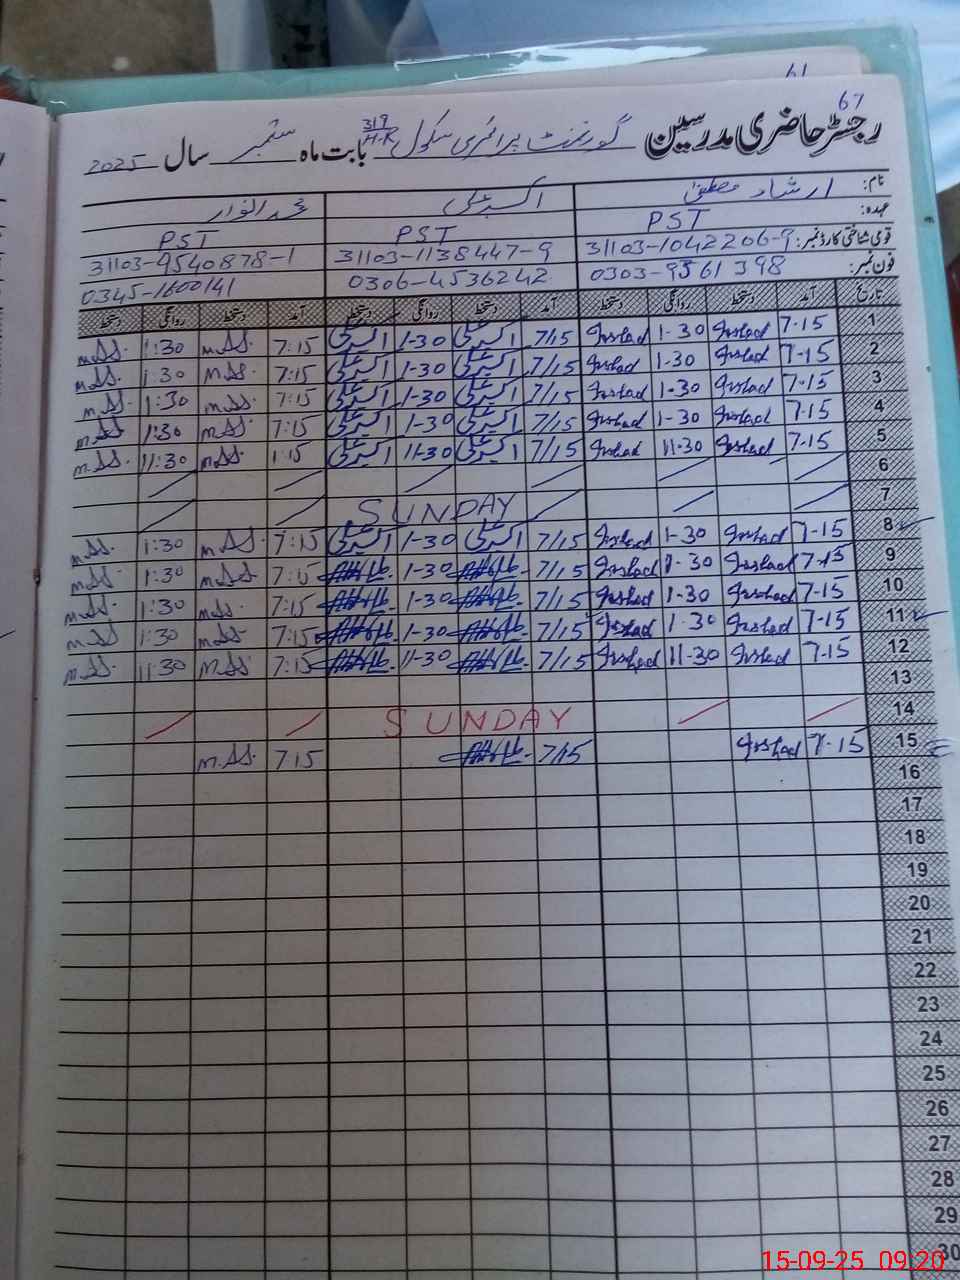 61
67
رجسٹر حاضری مدرسین گورنمنٹ پرائمری سکول 319/H.R بابت ماہ ستمبر سال 2025
نام: ارشاد مصطفیٰ اکبر علی محمد انوار
عہدہ: PST PST PST
قومی شناختی کارڈ نمبر: 31103-1042206-9 31103-1138447-9 31103-9540878-1
فون نمبر: 0303-9561398 0306-4536242 0345-1600141
تاریخ آمد دستخط روانگی دستخط آمد دستخط روانگی دستخط آمد دستخط روانگی دستخط
1 7-15 Irshad 1-30 Irshad 7/15 اکبر علی 1-30 اکبر علی 7:15 m.AS. 1:30 m.AS.
2 7-15 Irshad 1-30 Irshad 7/15 اکبر علی 1-30 اکبر علی 7:15 m.AS. 1:30 m.AS.
3 7-15 Irshad 1-30 Irshad 7/15 اکبر علی 1-30 اکبر علی 7:15 m.AS. 1:30 m.AS.
4 7-15 Irshad 1-30 Irshad 7/15 اکبر علی 1-30 اکبر علی 7:15 m.AS. 1:30 m.AS
5 7-15 Irshad 11-30 Irshad 7/15 اکبر علی 11-30 اکبر علی 1:15 m.AS. 11:30 m.AS.
6
7 SUNDAY
8 7-15 Irshad 1-30 Irshad 7/15 اکبر علی 1-30 اکبر علی 7:15 m.AS. 1:30 m.AS.
9 7-15 Irshad 1-30 Irshad 7/15 1-30 7:15 m.AS. 1:30 m.AS.
10 7-15 Irshad 1-30 Irshad 7/15 1-30 7:15 m.AS. 1:30 m.AS.
11 7-15 Irshad 1-30 Irshad 7/15 1-30 7:15 m.AS. 1:30 m.AS
12 7-15 Irshad 11-30 Irshad 7/15 11-30 7:15 m.AS. 11:30 m.AS.
13
14 SUNDAY
15 7-15 Irshad 7/15 7:15 m.AS.
16
17
18
19
20
21
22
23
24
25
26
27
28
29
30
15-09-25 09.20